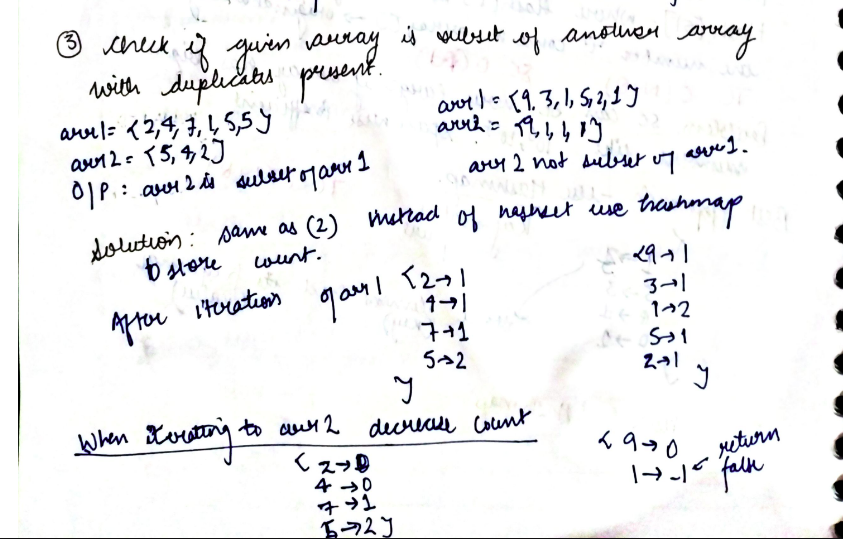 ③ check if given array is subset of another array
with duplicates present.
arr1= {2,4,7,1,5,5}
arr2 = {5,4,2}
O/P : arr 2 is subset of arr 1
arr1 = {9,3,1,5,2,1}
arr2 = {9,1,1,1}
arr 2 not subset of arr1.
Solution: same as (2) instead of hashset use hashmap
to store count.
After iteration of arr1 {2→1
4→1
7→1
5→2
}
{9→1
3→1
1→2
5→1
2→1 }
When iterating to arr2 decrease count
{ 2→0
4→0
7→1
5→2}
{ 9→0
1→-1 return
false